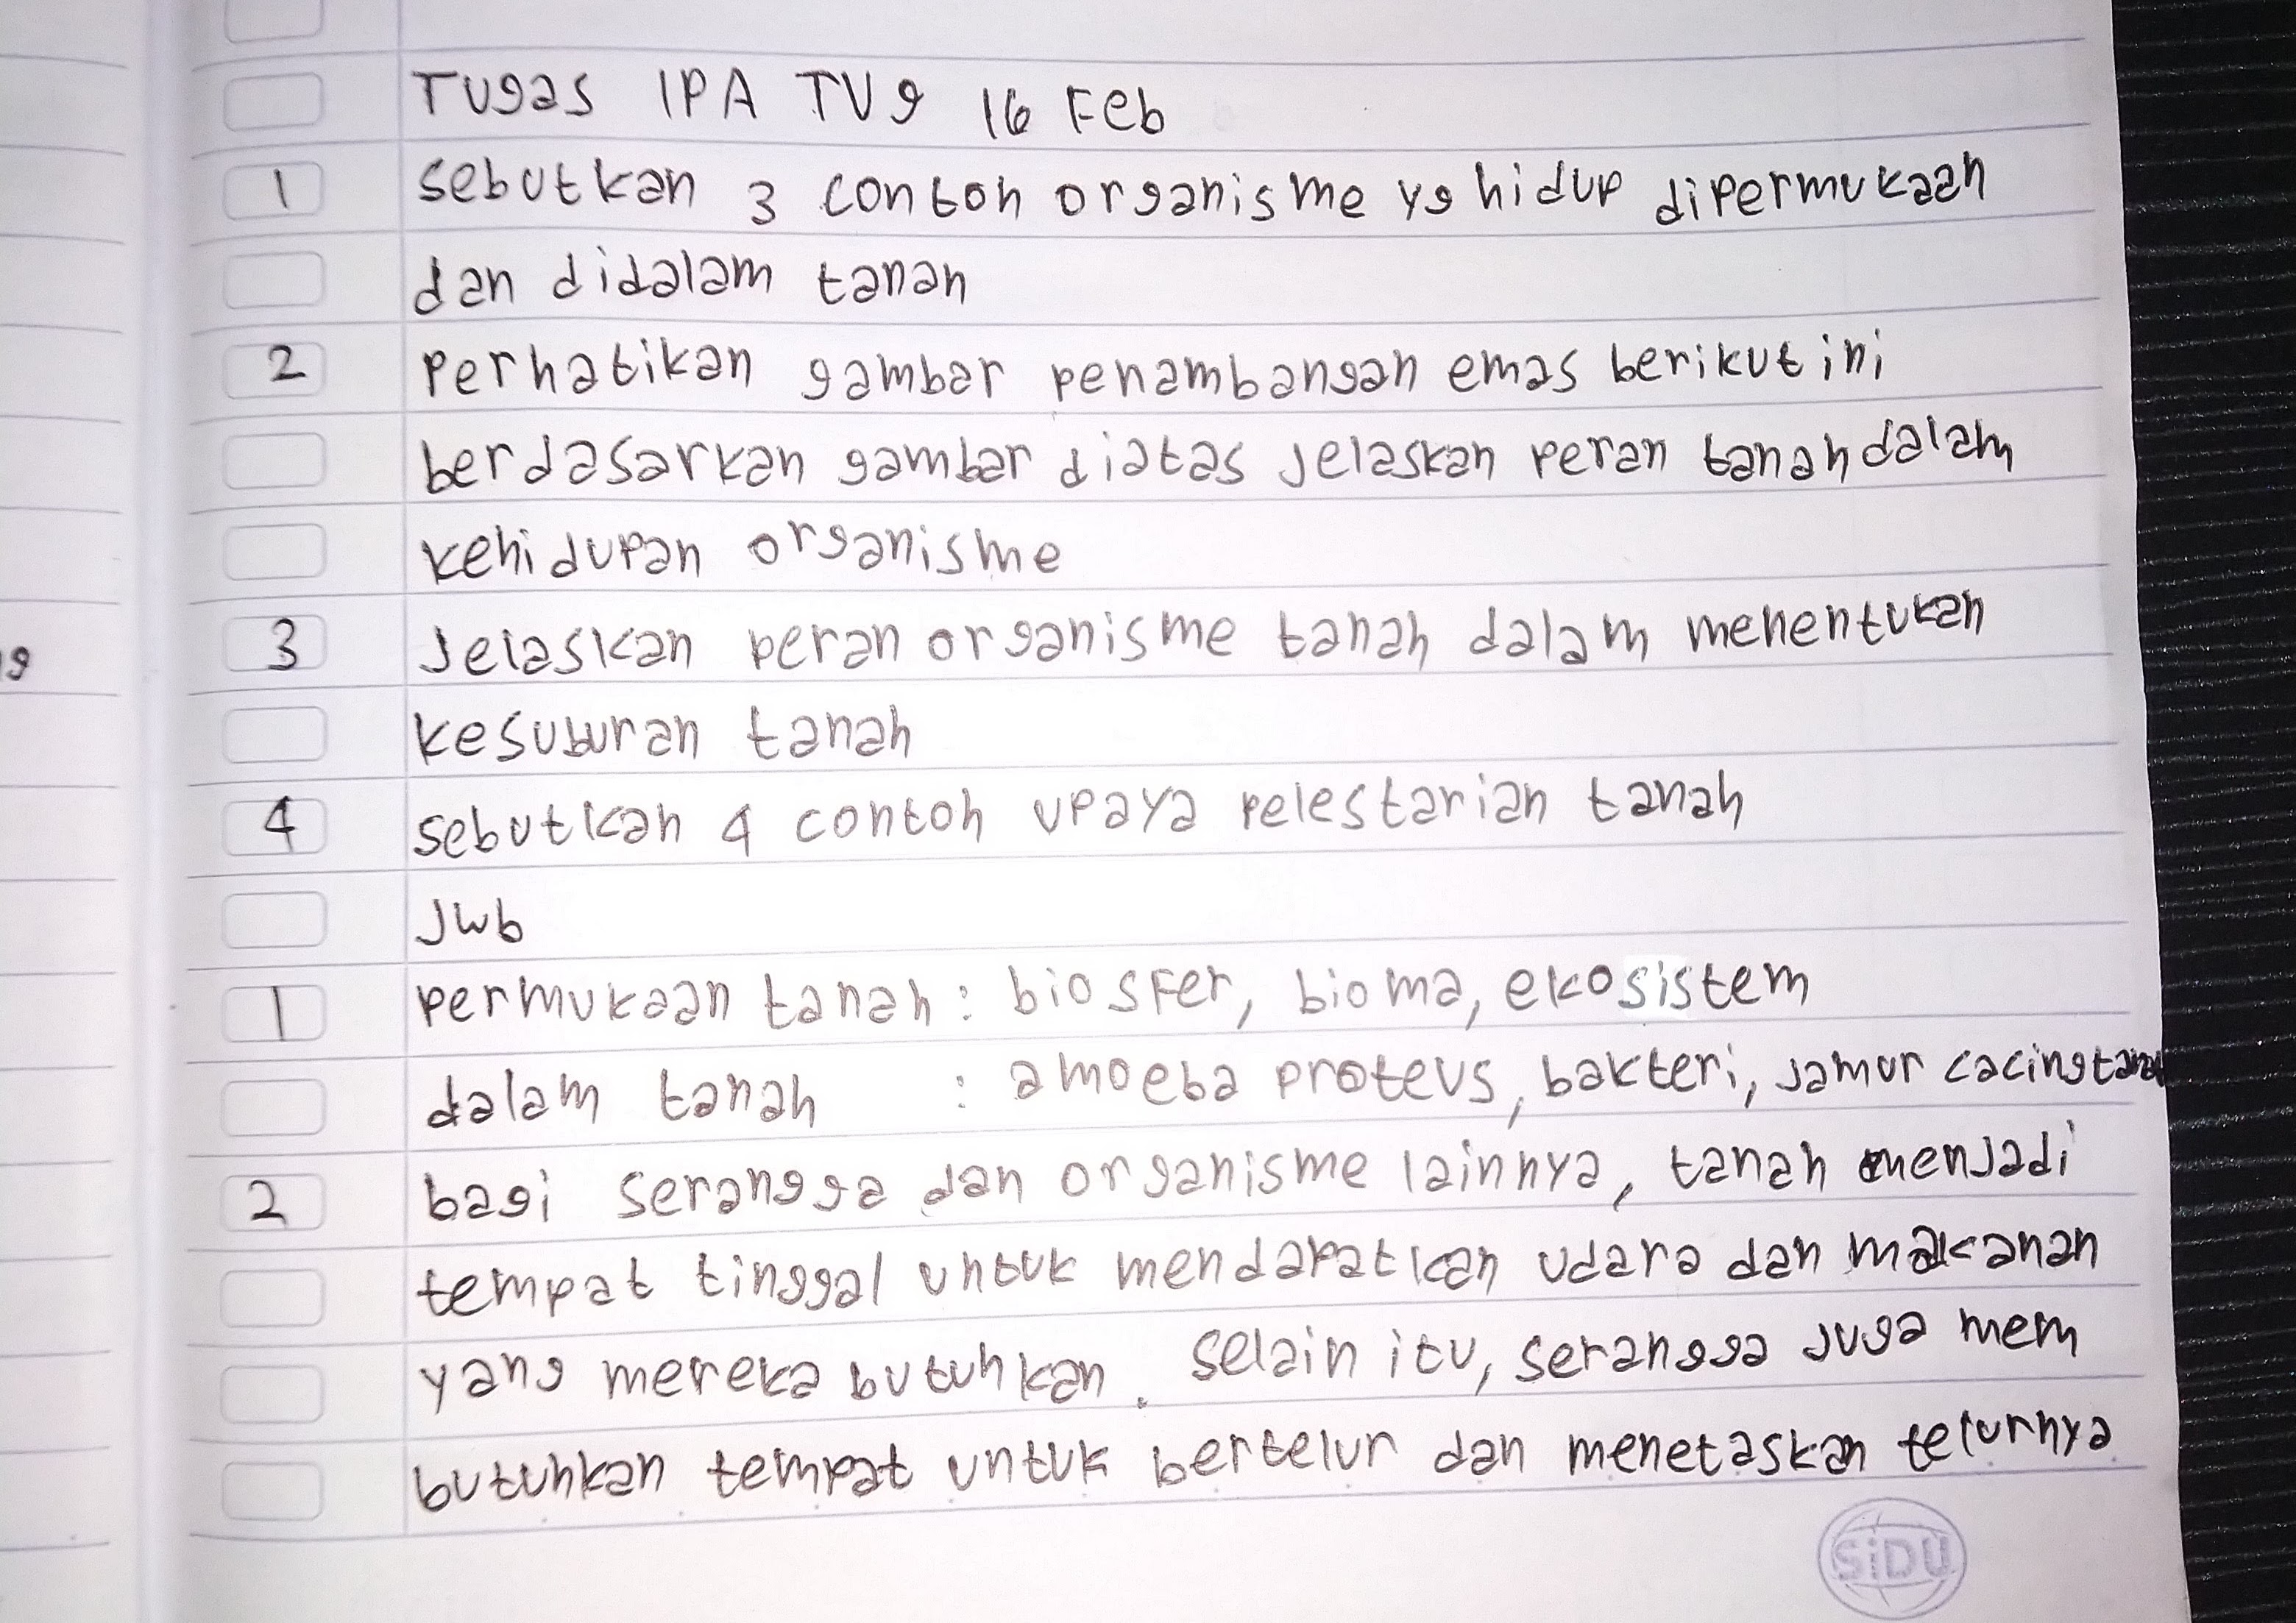 Tugas IPA TV9 16 Feb
1 sebutkan 3 contoh organisme yg hidup dipermukaan
dan didalam tanah
2 perhatikan gambar penambangan emas berikut ini
berdasarkan gambar diatas jelaskan peran tanah dalam
kehidupan organisme
3 Jelaskan peran organisme tanah dalam menentukan
kesuburan tanah
4 sebutkan 4 contoh upaya pelestarian tanah
Jwb
1 permukaan tanah : biosfer, bioma, ekosistem
dalam tanah : amoeba proteus, bakteri, jamur cacing tanah
2 bagi serangga dan organisme lainnya, tanah menjadi
tempat tinggal untuk mendapatkan udara dan makanan
yang mereka butuhkan. selain itu, serangga juga mem
butuhkan tempat untuk bertelur dan menetaskan telurnya
SiDU